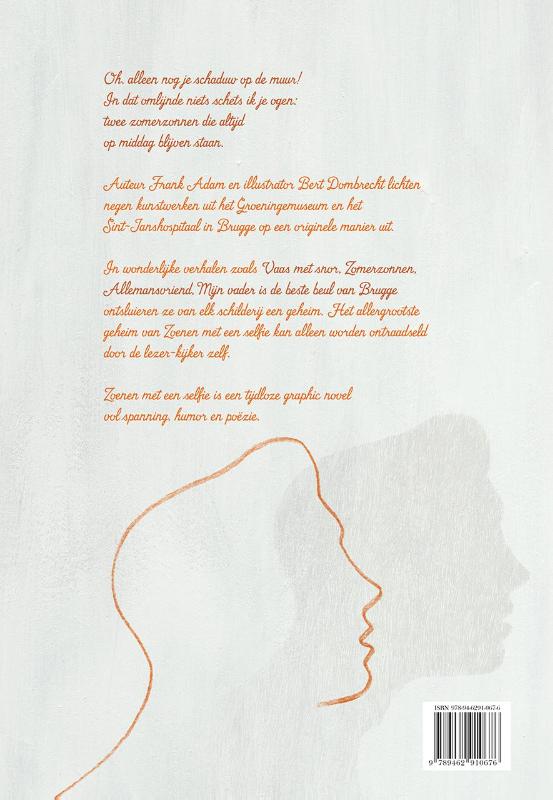 Oh, alleen nog je schaduw op de muur!
In dat omlijnde niets schets ik je ogen:
twee zomerzonnen die altijd
op middag blijven staan.
Auteur Frank Adam en illustrator Bert Dombrecht lichten
negen kunstwerken uit het Groeningemuseum en het
Sint-Janshospitaal in Brugge op een originele manier uit.
In wonderlijke verhalen zoals Vaas met snor, Zomerzonnen,
Allemansvriend, Mijn vader is de beste beul van Brugge
ontsluieren ze van elk schilderij een geheim. Het allergrootste
geheim van Zoenen met een selfie kan alleen worden ontraadseld
door de lezer-kijker zelf.
Zoenen met een selfie is een tijdloze graphic novel
vol spanning, humor en poëzie.
ISBN 978-94-6291-067-6
9 789462 910676